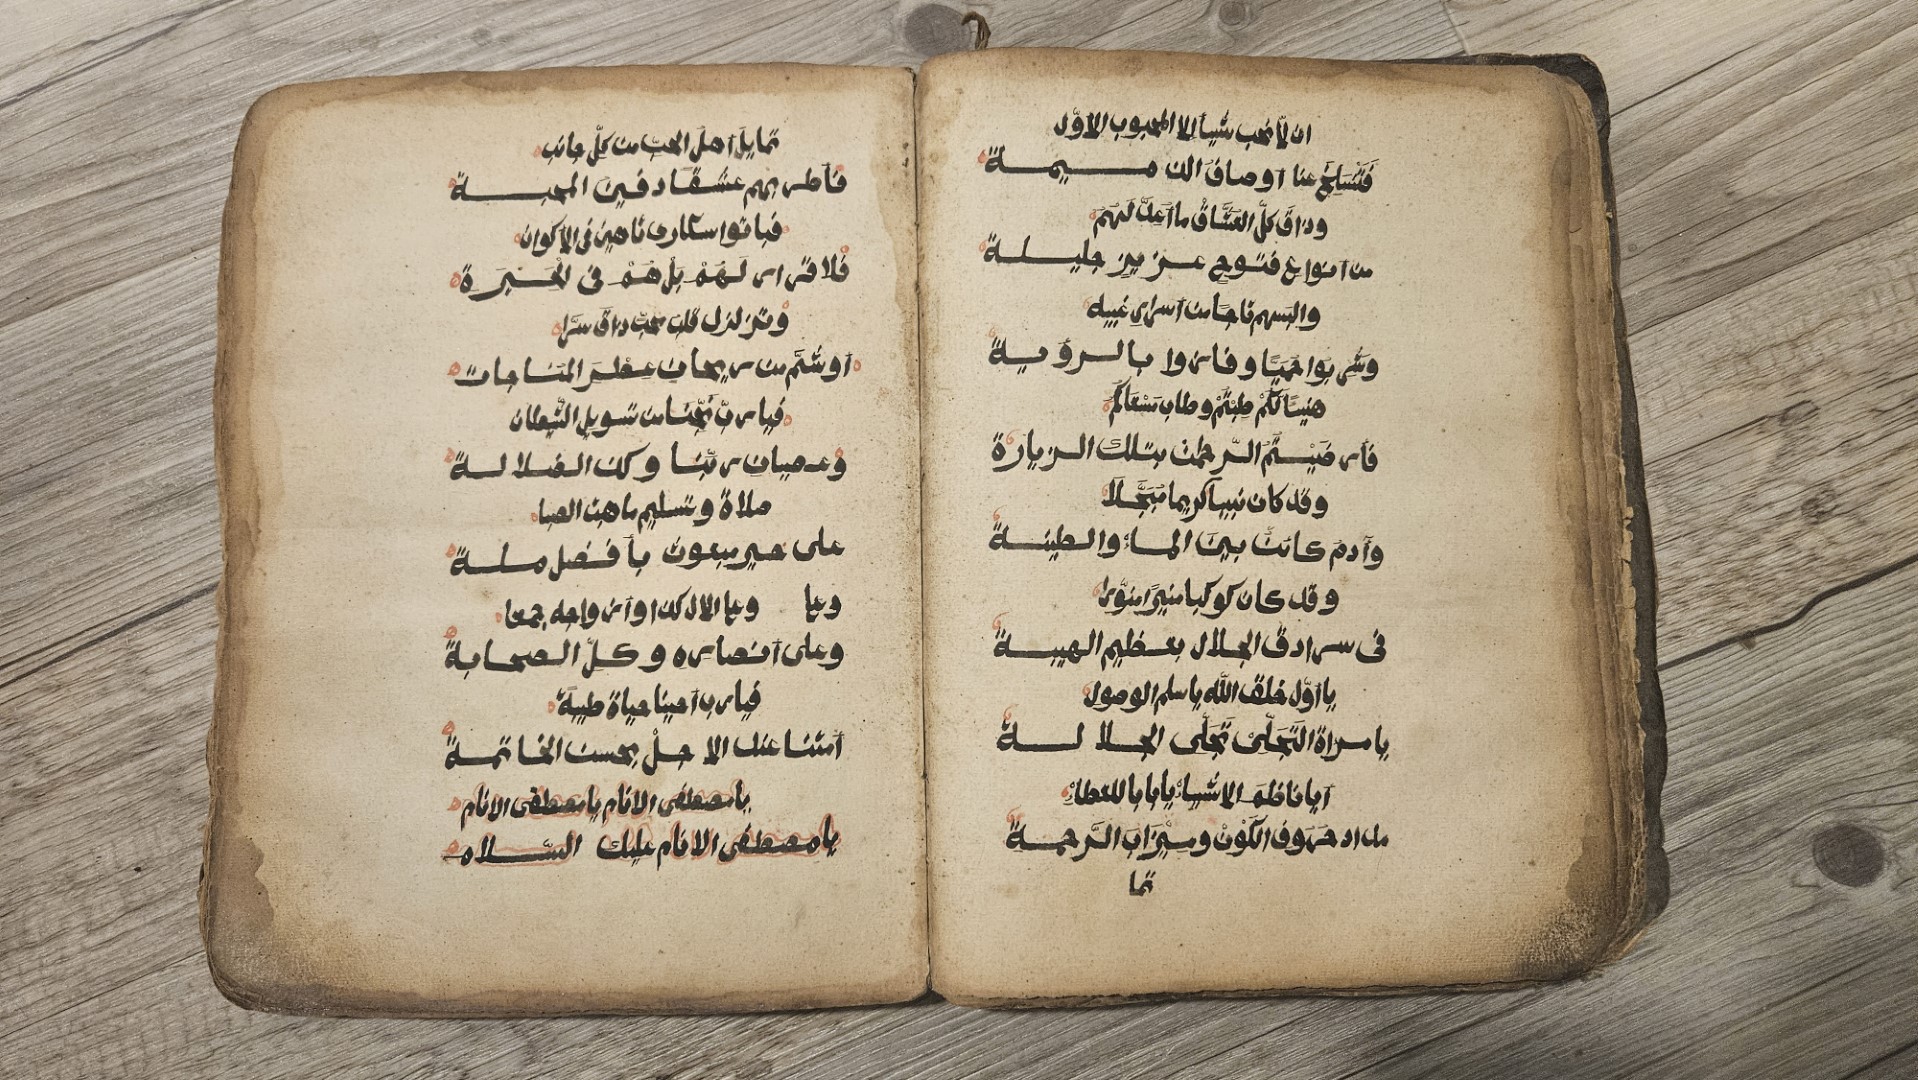 ان لا نحب شيأ الا المحبوب الاوّل
فتنسلخ عنا اوصاف الذميمة
وذاق كلّ العشّاق ما اعدّ لهم
من انواع فتوح عزيز جليلة
والبسهم تاجا من اسرار غيبه
وشربوا حميّا وفازوا بالرؤية
هنيئا لكم طبتم وطاب مسعاكم
فارضيتم الرّحمن بتلك الزيارة
وقد كان نبيا كريما مبجّلا
وآدم كانت بين الماء والطينة
وقد كان كوكبا منيرا منوّرا
فى سرادق الجلال بعظيم الهيبة
يا اوّل خلق اللّه يا سلم الوصول
يا مراة التجلّى تجلّى الجلالة
ايا نا ظم الاشياء يا بابا للعطاء
مداد حروف الكون وميزاب الرّحمة
تما
تمايل اهل الحبّ من كلّ جانب
فأطربهم عشقا دفين المحبة
فباتوا سكارى تاهين فى الاكوان
فلا قرار لهم بل هم فى الحيرة
وتزلزل قلب محبّ ذاق سرّا
اوشمّ من ريحان عطر المناجات
فيا ربّ نجّنا من تسويل الشّيطان
وعصيان ربّنا وكل الضلالة
صلاة وتسليم ما هبت الصبا
على خير مبعوث بأفضل ملة
وعلى وعلى الال كذا وازواجه جمعا
وعلى انصاره وكلّ الصحابة
فيا رب احينا حياة طيبة
امتنا عند الاجل بحسن الخاتمة
يا مصطفى الانام يا مصطفى الانام
يا مصطفى الانام عليك السّلام